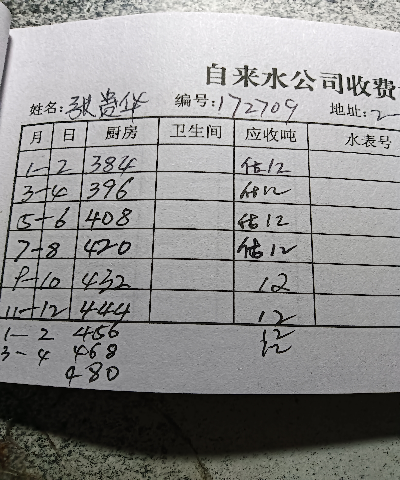 自来水公司收费
姓名:张贵华 编号:172709 地址:2-
月 日 厨房 卫生间 应收吨 水表号
1-2 384 估12
3-4 396 估12
5-6 408 估12
7-8 420 估12
9-10 432 12
11-12 444 12
1-2 456 12
3-4 468 12
480